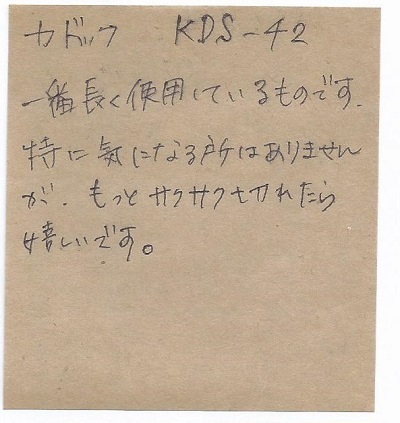 カドック KDS-42
一番長く使用しているものです.
特に気になる所はありません
が.もっとサクサク切れたら
嬉しいです。